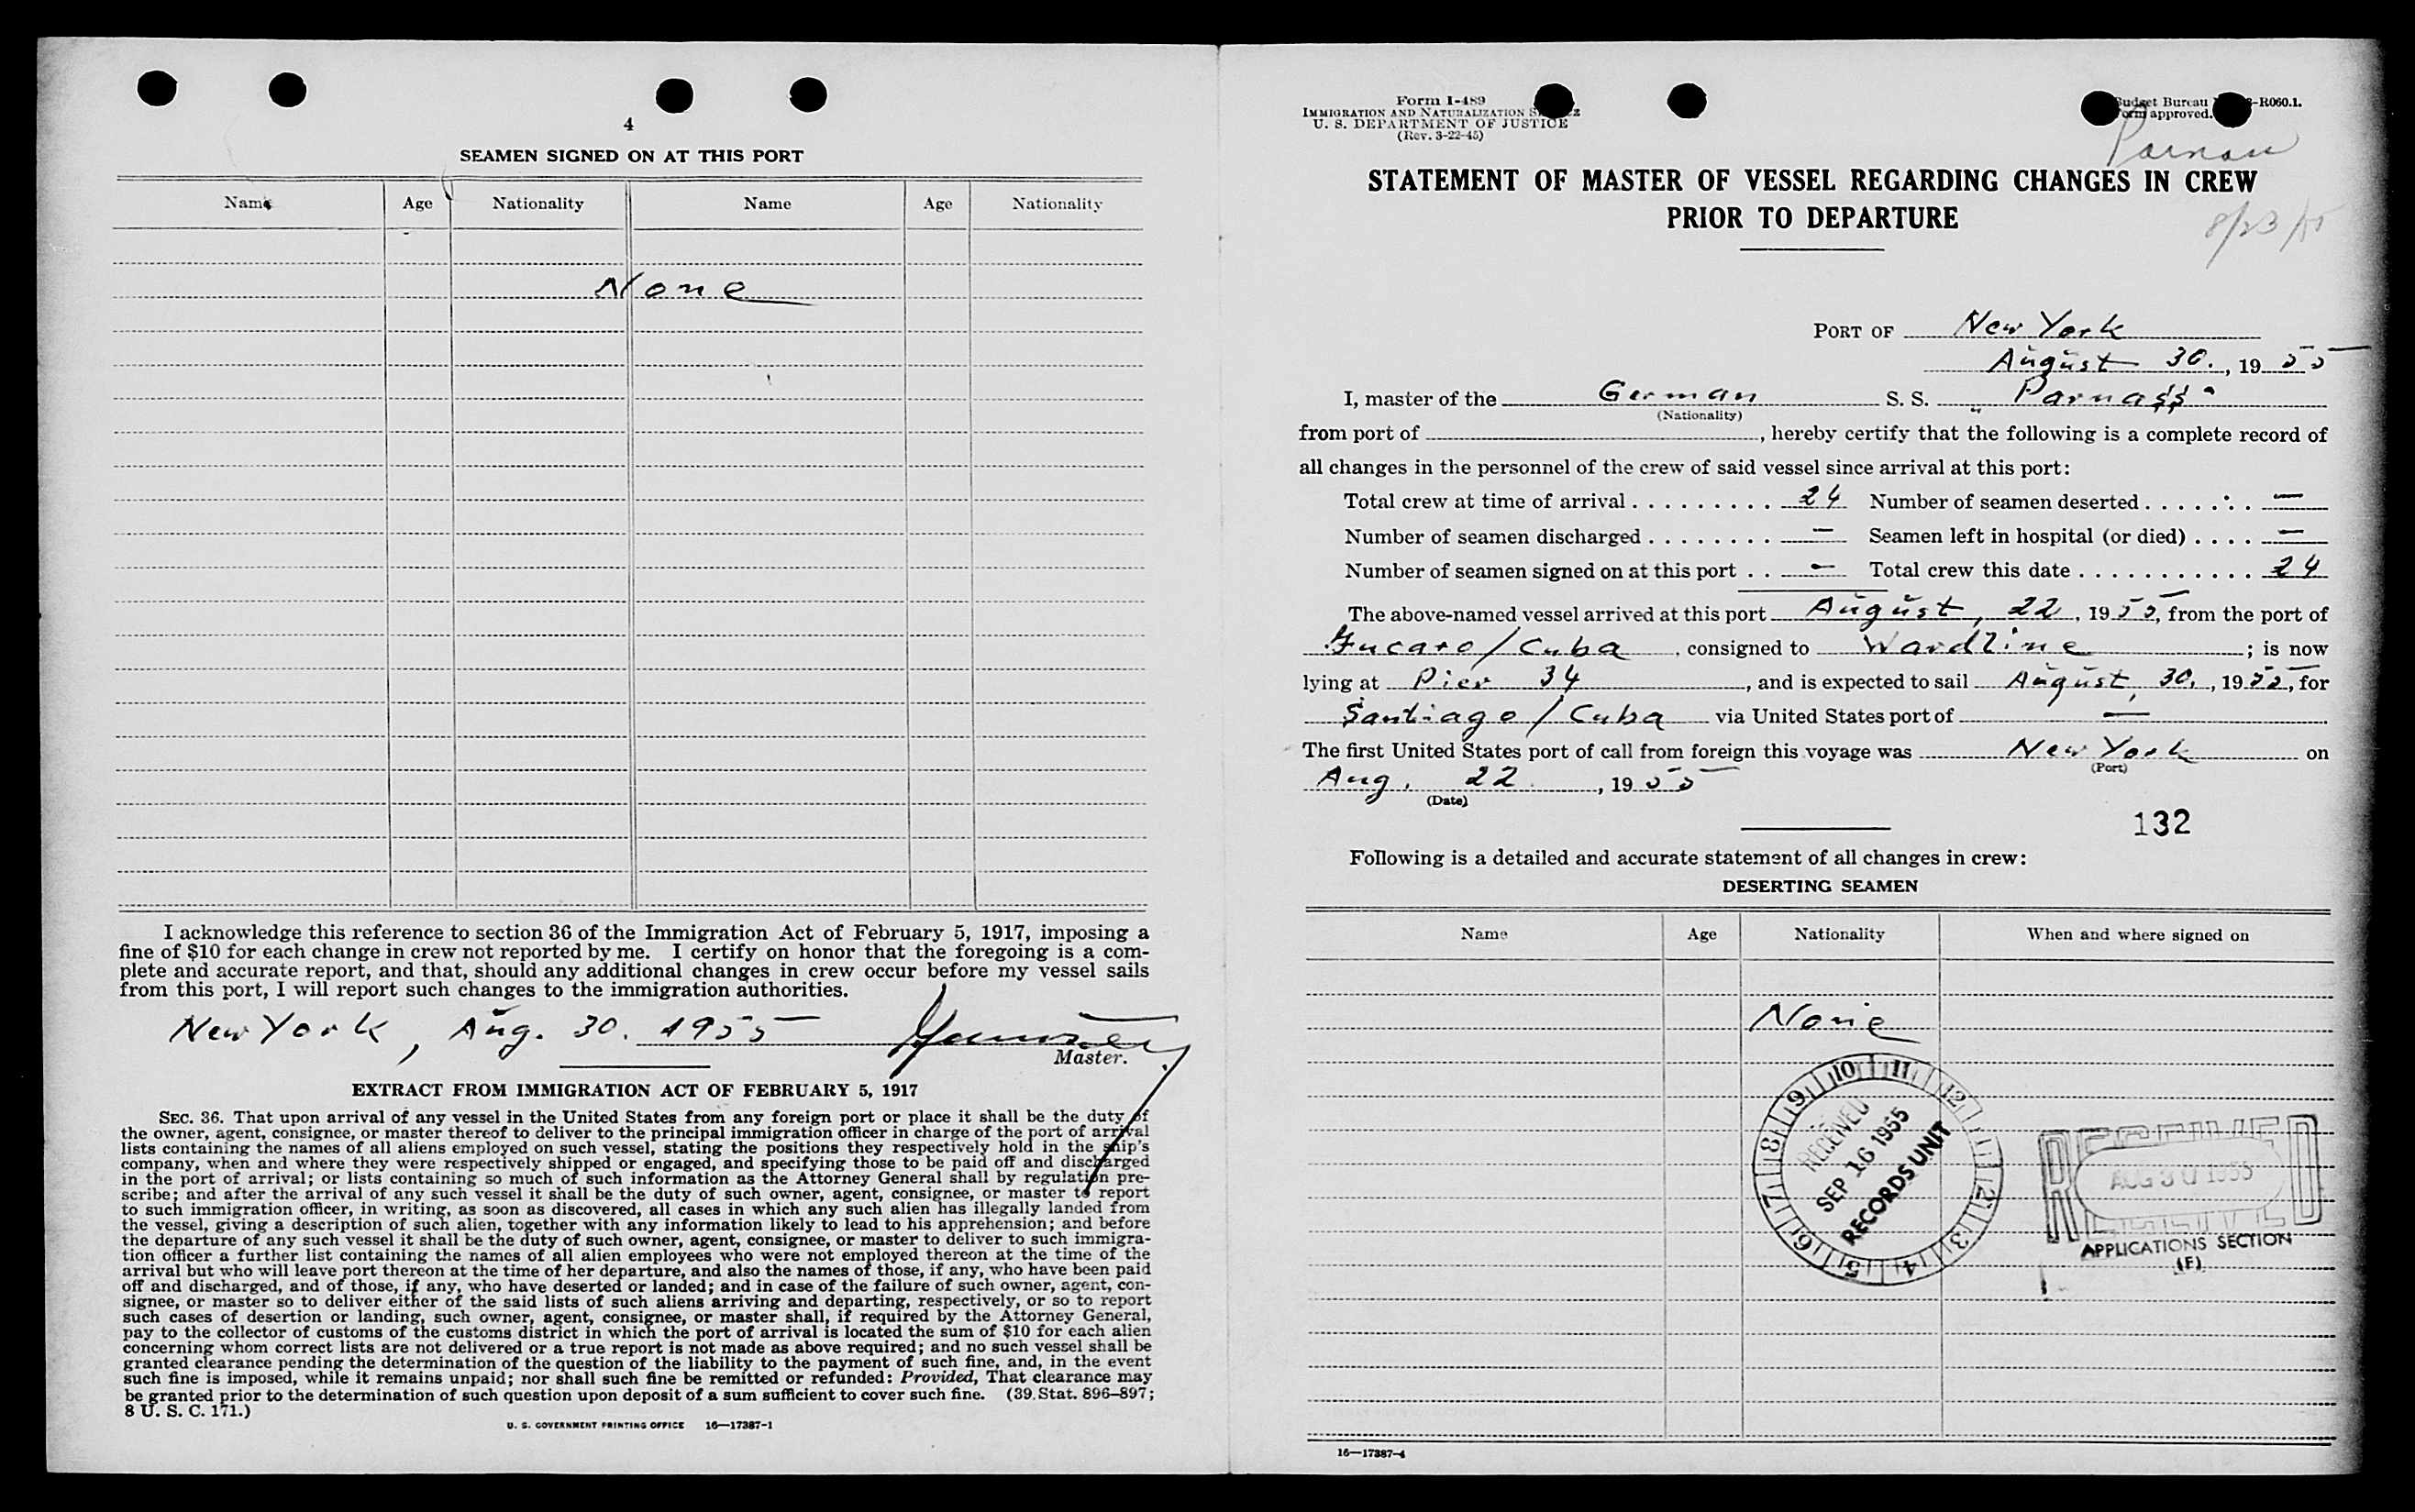 4
SEAMEN SIGNED ON AT THIS PORT
Name Age Nationality Name Age Nationality
None
I acknowledge this reference to section 36 of the Immigration Act of February 5, 1917, imposing a
fine of $10 for each change in crew not reported by me. I certify on honor that the foregoing is a com-
plete and accurate report, and that, should any additional changes in crew occur before my vessel sails
from this port, I will report such changes to the immigration authorities.
New York, Aug. 30. 1955
Master.
EXTRACT FROM IMMIGRATION ACT OF FEBRUARY 5, 1917
SEC. 36. That upon arrival of any vessel in the United States from any foreign port or place it shall be the duty of
the owner, agent, consignee, or master thereof to deliver to the principal immigration officer in charge of the port of arrival
lists containing the names of all aliens employed on such vessel, stating the positions they respectively hold in the ship's
company, when and where they were respectively shipped or engaged, and specifying those to be paid off and discharged
in the port of arrival; or lists containing so much of such information as the Attorney General shall by regulation pre-
scribe; and after the arrival of any such vessel it shall be the duty of such owner, agent, consignee, or master to report
to such immigration officer, in writing, as soon as discovered, all cases in which any such alien has illegally landed from
the vessel, giving a description of such alien, together with any information likely to lead to his apprehension; and before
the departure of any such vessel it shall be the duty of such owner, agent, consignee, or master to deliver to such immigra-
tion officer a further list containing the names of all alien employees who were not employed thereon at the time of the
arrival but who will leave port thereon at the time of her departure, and also the names of those, if any, who have been paid
off and discharged, and of those, if any, who have deserted or landed; and in case of the failure of such owner, agent, con-
signee, or master so to deliver either of the said lists of such aliens arriving and departing, respectively, or so to report
such cases of desertion or landing, such owner, agent, consignee, or master shall, if required by the Attorney General,
pay to the collector of customs of the customs district in which the port of arrival is located the sum of $10 for each alien
concerning whom correct lists are not delivered or a true report is not made as above required; and no such vessel shall be
granted clearance pending the determination of the question of the liability to the payment of such fine, and, in the event
such fine is imposed, while it remains unpaid; nor shall such fine be remitted or refunded: Provided, That clearance may
be granted prior to the determination of such question upon deposit of a sum sufficient to cover such fine. (39 Stat. 896–897;
8 U. S. C. 171.)
U. S. GOVERNMENT PRINTING OFFICE 16—17387-1
Form I-489
IMMIGRATION AND NATURALIZATION
U. S. DEPARTMENT OF JUSTICE
(Rev. 3-22-45)
Budget Bureau -R060.1.
Form approved.
STATEMENT OF MASTER OF VESSEL REGARDING CHANGES IN CREW
PRIOR TO DEPARTURE
8/23/55
PORT OF New York
August 30., 1955
I, master of the German S. S. "Parnass"
(Nationality)
from port of , hereby certify that the following is a complete record of
all changes in the personnel of the crew of said vessel since arrival at this port:
Total crew at time of arrival . . . . . . . . . 24 Number of seamen deserted . . . . . . . —
Number of seamen discharged . . . . . . . . — Seamen left in hospital (or died) . . . . —
Number of seamen signed on at this port . . — Total crew this date . . . . . . . . . . . 24
The above-named vessel arrived at this port August, 22, 1955, from the port of
Jucaro/Cuba, consigned to Wardline; is now
lying at Pier 34, and is expected to sail August, 30., 1955, for
Santiago/Cuba via United States port of —.
The first United States port of call from foreign this voyage was New York on
(Port)
Aug. 22, 1955
(Date)
132
Following is a detailed and accurate statement of all changes in crew:
DESERTING SEAMEN
Name Age Nationality When and where signed on
None
9 10 11 12 1 2 3 4 5 6 7 8
RECEIVED
SEP 16 1955
RECORDS UNIT
RECEIVED
AUG 30 1955
APPLICATIONS SECTION
(F)
16—17387-4